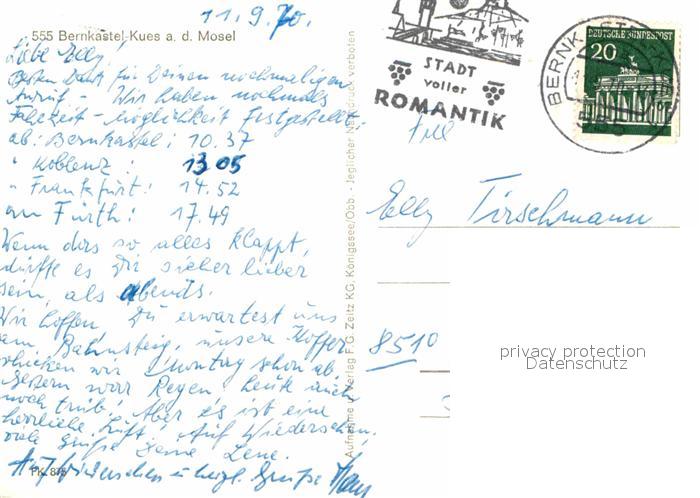 11.9.70.
555 Bernkastel-Kues a. d. Mosel
Liebe Elly!
Besten Dank für Deinen nochmaligen
Anruf. Wir haben nochmals
Fahrzeit-möglichkeit festgestellt:
ab: Bernkastel: 10.37
" Koblenz: 13 05
" Frankfurt: 14.52
an Fürth: 17.49
Wenn das so alles klappt,
dürfte es Dir sicher lieber
sein, als abends.
Wir hoffen, Du erwartest uns
am Bahnsteig, unsere Koffer
schicken wir Montag schon ab.
Gestern war Regen, heute auch
noch trüb! Aber es ist eine
herrliche Luft! Auf Wiedersehen.
viele Grüße Deine Lene.
Auf Wiedersehen u herzl. Grüße Hans
PK. 875
Aufnahme u. Verlag F. G. Zeitz KG. Königssee/Obb. - Jeglicher Nachdruck verboten
STADT
voller
ROMANTIK
BERNKASTEL
DEUTSCHE BUNDESPOST
20
Frl
Elly Tirschmann
8510
privacy protection
Datenschutz